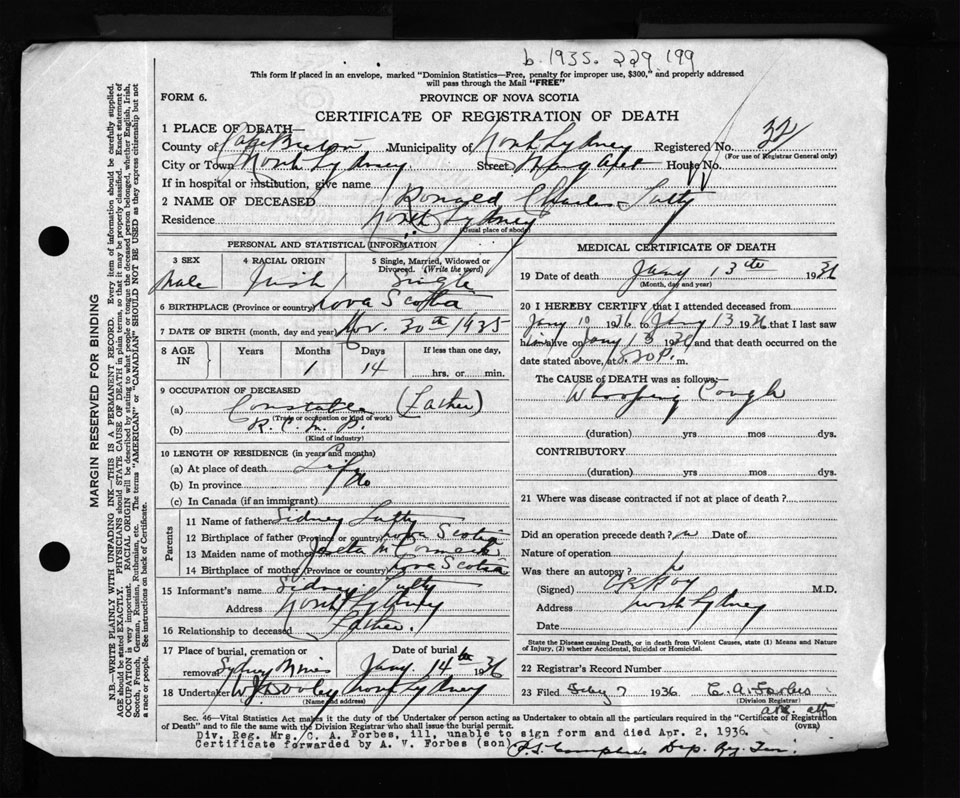 b. 1935. 229 199
This form if placed in an envelope, marked "Dominion Statistics—Free, penalty for improper use, $300," and properly addressed
will pass through the Mail "FREE"
FORM 6.
PROVINCE OF NOVA SCOTIA
CERTIFICATE OF REGISTRATION OF DEATH
1 PLACE OF DEATH—
County of Cape Breton Municipality of North Sydney Registered No. 32
(For use of Registrar General only)
City or Town North Sydney Street Margaret House No.
If in hospital or institution, give name
2 NAME OF DECEASED Ronald Charles Latty
Residence North Sydney
(Usual place of abode)
PERSONAL AND STATISTICAL INFORMATION
3 SEX Male
4 RACIAL ORIGIN Irish
5 Single, Married, Widowed or Divorced. (Write the word) Single
6 BIRTHPLACE (Province or country) Nova Scotia
7 DATE OF BIRTH (month, day and year) Nov. 30th 1935
8 AGE IN Years Months 1 Days 14 If less than one day, hrs. or min.
9 OCCUPATION OF DECEASED
(a) Constable (Father)
(Trade or occupation or kind of work)
(b) R. C. M. P.
(Kind of industry)
10 LENGTH OF RESIDENCE (in years and months)
(a) At place of death Life
(b) In province do
(c) In Canada (if an immigrant)
Parents
11 Name of father Sidney Latty
12 Birthplace of father (Province or country) Nova Scotia
13 Maiden name of mother McCormick
14 Birthplace of mother (Province or country) Nova Scotia
15 Informant's name Sidney Latty
Address North Sydney
16 Relationship to deceased Father.
17 Place of burial, cremation or removal Sydney Mines
Date of burial Jany. 14th 1936
18 Undertaker W J Dooley North Sydney
(Name and address)
MEDICAL CERTIFICATE OF DEATH
19 Date of death Jany 13th 1936
(Month, day and year)
20 I HEREBY CERTIFY that I attended deceased from
Jany 10 1936 to Jany 13 1936 that I last saw
him alive on Jany 13 1936 and that death occurred on the
date stated above, at P. m.
The CAUSE OF DEATH was as follows:—
Whooping Cough
(duration) yrs mos dys.
CONTRIBUTORY
(duration) yrs. mos dys.
21 Where was disease contracted if not at place of death?
Did an operation precede death? no Date of
Nature of operation
Was there an autopsy?
(Signed) M.D.
Address North Sydney
Date
State the Disease causing Death, or in death from Violent Causes, state (1) Means and Nature
of Injury, (2) whether Accidental, Suicidal or Homicidal.
22 Registrar's Record Number
23 Filed Feby 7 1936 C. A. Forbes
(Division Registrar)
Sec. 46—Vital Statistics Act makes it the duty of the Undertaker or person acting as Undertaker to obtain all the particulars required in the "Certificate of Registration
of Death" and to file the same with the Division Registrar who shall issue the burial permit.
(OVER)
Div. Reg. Mrs. C. A. Forbes, ill, unable to sign form and died Apr. 2, 1936.
Certificate forwarded by A. V. Forbes (son)
MARGIN RESERVED FOR BINDING
N.B.—WRITE PLAINLY WITH UNFADING INK—THIS IS A PERMANENT RECORD. Every item of information should be carefully supplied.
AGE should be stated EXACTLY. PHYSICIANS should STATE CAUSE OF DEATH in plain terms, so that it may be properly classified. Exact statement of
OCCUPATION is very important. RACIAL ORIGIN will be described by stating to what people or tongue the deceased person belonged, whether English, Irish,
Scotch, French, German, Russian, Ruthenian, etc. The terms "AMERICAN" or "CANADIAN" SHOULD NOT BE USED as they express citizenship but not
a race or people. See instructions on back of Certificate.